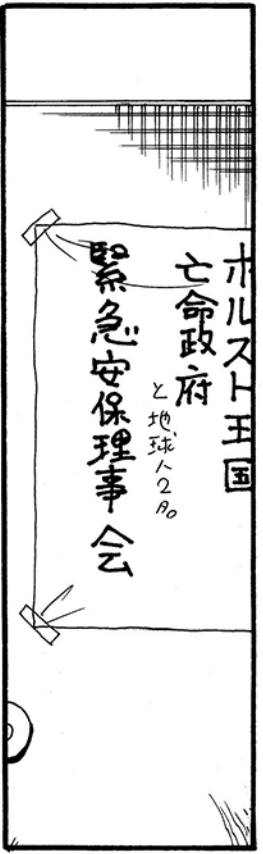 ホルスト王国
亡命政府
と地球人2名。
緊急安保理事会